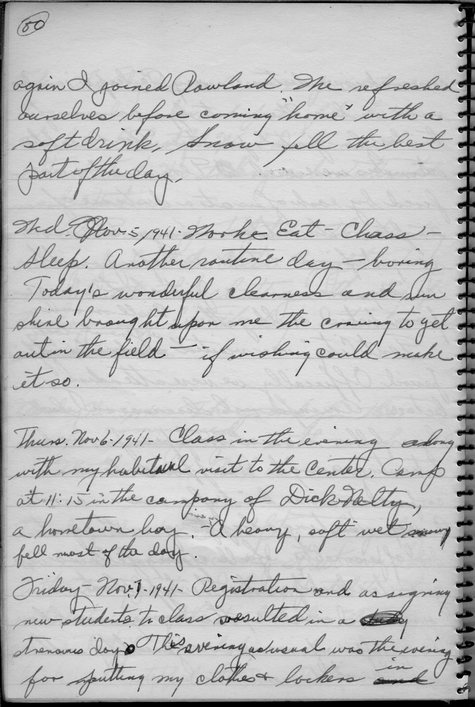 50
again I joined Rowland. We refreshed
ourselves before coming "home" with a
soft drink. Snow fell the best
part of the day.
Wed. Nov 5, 1941 - Work Eat - Class -
sleep. Another routine day - boring
Today's wonderful clearness and sun
shine brought upon me the craving to get
out in the field - if wishing could make
it so.
Thurs. Nov 6 - 1941 - Class in the evening along
with my habitual visit to the Center. Camp
at 11:15 in the company of Dick Nelty,
a hometown boy. - A heavy, soft wet
fell most of the day.
Friday - Nov 7 - 1941 - Registration and assigning
new students to class resulted in a
strenuous day. This evening as usual was the evening
for putting my clothes & lockers in